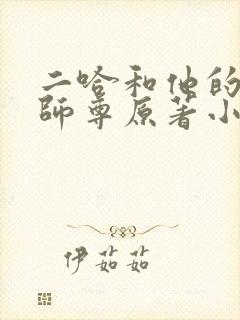 二哈和他的
師尊原著小
伊茹茹